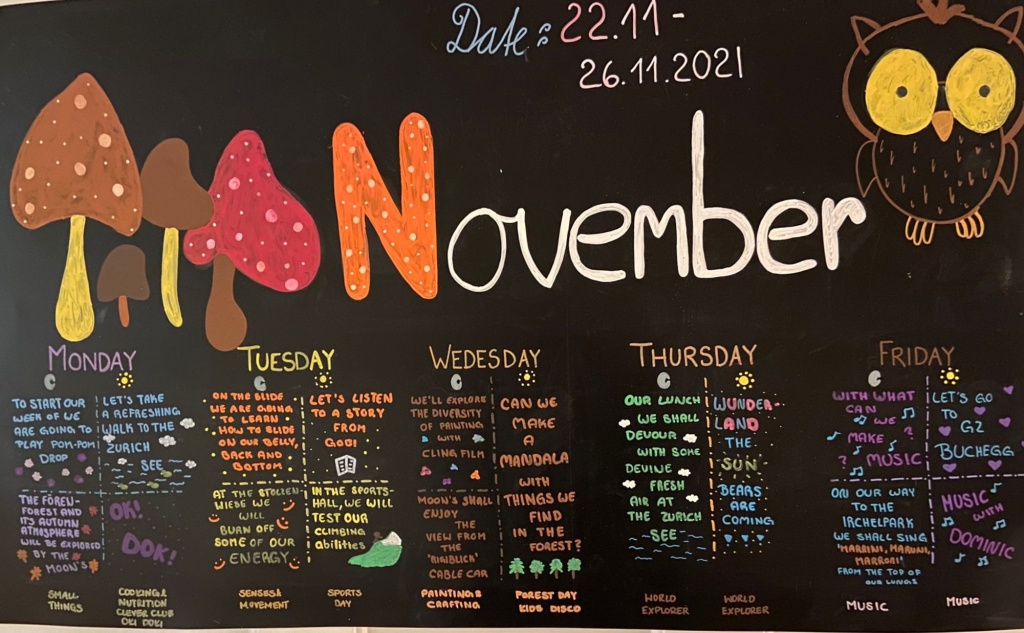 Date: 22.11-
26.11.2021
November
MONDAY
TO START OUR
WEEK OF WE
ARE GOING TO
PLAY POM-POM
DROP
LET'S TAKE
A REFRESHING
WALK TO THE
ZURICH
SEE
THE
FOREST AND
ITS AUTUMN
ATMOSPHERE
WILL BE EXPLORED
BY THE
MOON'S
OK!
DOK!
SMALL
THINGS
COOKING &
NUTRITION
CLEVER CLUB
OKI DOKI
TUESDAY
ON THE SLIDE
WE ARE GOING
TO LEARN
HOW TO SLIDE
ON OUR BELLY,
BACK AND
BOTTOM
LET'S LISTEN
TO A STORY
FROM
GOGI
AT THE STOLLEN-
WIESE WE
WILL
BURN OFF
SOME OF OUR
ENERGY
IN THE SPORTS-
HALL, WE WILL
TEST OUR
CLIMBING
abilities
SENSES &
MOVEMENT
SPORTS
DAY
WEDESDAY
WE'LL EXPLORE
THE DIVERSITY
OF PAINTING
WITH
CLING FILM
CAN WE
MAKE
A
MANDALA
WITH
THINGS WE
FIND
IN THE
FOREST?
MOON'S SHALL
ENJOY
THE
VIEW FROM
THE
"RINIBLICK"
CABLE CAR
PAINTING &
CRAFTING
FOREST DAY
KIDS DISCO
THURSDAY
OUR LUNCH
WE SHALL
DEVOUR
WITH SOME
DEVINE
FRESH
AIR AT
THE ZURICH
SEE
WUNDER-
LAND
THE
SUN
BEARS
ARE
COMING
WORLD
EXPLORER
WORLD
EXPLORER
FRIDAY
WITH WHAT
CAN
WE
MAKE ?
? MUSIC
LET'S GO
TO
GZ
BUCHEGG
ON OUR WAY
TO THE
IRCHELPARK
WE SHALL SING
'MARRINI, MARUNI,
MARRONI'
FROM THE TOP OF
OUR LUNGS
MUSIC
WITH
DOMINIC
MUSIC
MUSIC